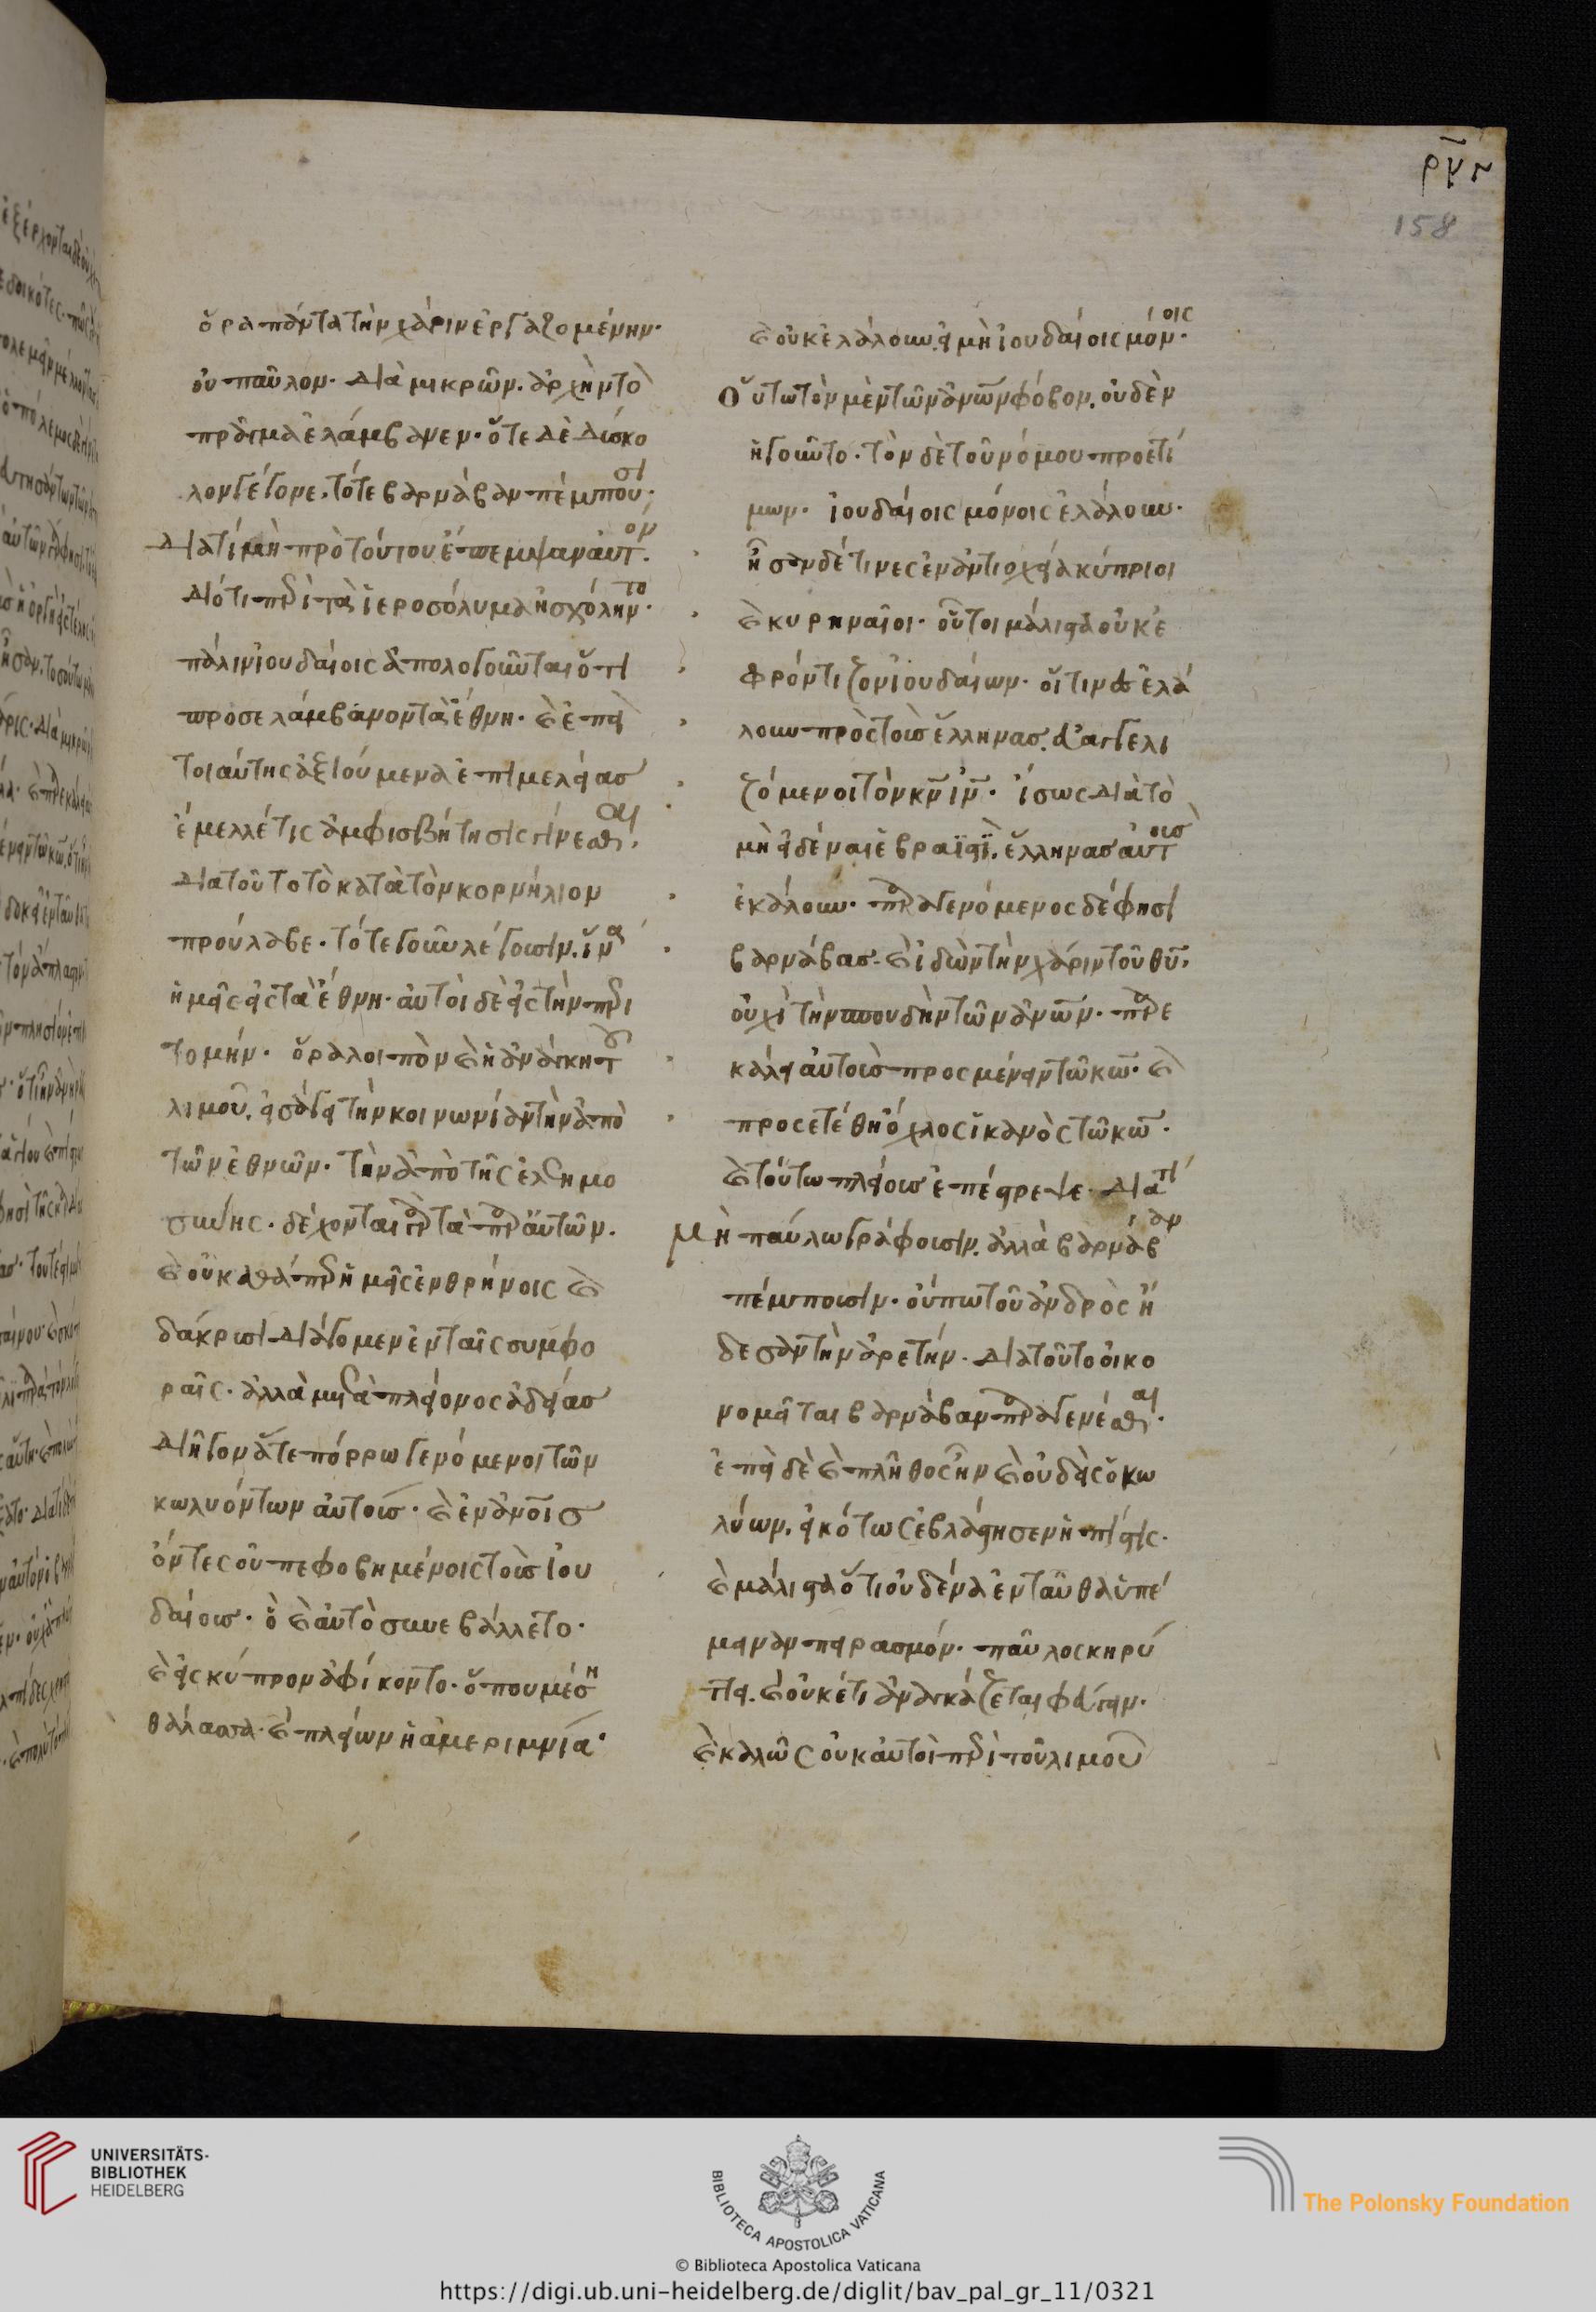 ρνη
158
ὅρα πάντα τὴν χάριν ἐργαζομένην·
οὐ παῦλον· διὰ μικρῶν. ἀρχὴν τὸ
πρᾶγμα ἐλάμβανεν· ὅτε δὲ δύσκο
λον γέγονε. τότε βαρνάβαν πέμπουσι·
Διατί μὴ πρὸ τούτου ἔπεμψαν αὐτόν.
διότι περὶ τὰ ἱεροσόλυμα ἠσχόληντο·
πάλιν ἰουδαίοις ἀπολογοῦνται ὅτι
προσελάμβανον τὰ ἔθνη· καὶ ἐπεὶ
τοιαύτης ἀξιούμενα ἐπιμελείας
ἔμελλέ τις ἀμφισβήτησις γίνεσθαι.
διατοῦτο τὸ κατὰ τὸν κορνήλιον
προύλαβε. τότε γοῦν λέγουσιν. ἵνα
ἡμεῖς εἰς τὰ ἔθνη· αὐτοὶ δὲ εἰς τὴν περι
τομήν· ὅρα λοιπὸν καὶ ἡ ἀνάγκη τοῦ
λιμοῦ. εἰσάγει τὴν κοινωνίαν τὴν ἀπὸ
τῶν ἐθνῶν. τὴν ἀπὸ τῆς ἐλεημο
σύνης. δέχονται γὰρ τὰ παρ' αὐτῶν.
καὶ οὐ καθάπερ ἡμεῖς ἐν θρήνοις καὶ
δάκρυσι διάγομεν ἐν ταῖς συμφο
ραῖς. ἀλλὰ μετὰ πλείονος ἀδείας
διῆγον ἅτε πόρρω γενόμενοι τῶν
κωλυόντων αὐτούς· καὶ ἐν ἀνοῖς
ὄντες οὐ πεφοβημένοις τοὺς ἰου
δαίους· ὃ καὶ αὐτὸ συνεβάλλετο.
καὶ εἰς κύπρον ἀφίκοντο. ὅπου μέση
θάλασσα. καὶ πλείων ἡ ἀμεριμνία·
καὶ οὐκ ἐλάλουν. εἰ μὴ ἰουδαίοις μόνοις·
Οὕτω τὸν μὲν τῶν ἀνῶν φόβον. οὐδὲν
ἡγοῦντο. τὸν δὲ τοῦ νόμου προετί
μων. ἰουδαίοις μόνοις ἐλάλουν.
ἦσαν δέ τινες ἐν ἀντιοχεία κύπριοι
καὶ κυρηναῖοι. οὗτοι μάλιστα οὐκ ἐ
φρόντιζον ἰουδαίων. οἵτινες ἐλά
λουν πρὸς τοὺς ἕλληνας. εὐαγγελι
ζόμενοι τὸν κν ἰν. ἴσως διὰ τὸ
μὴ εἰδέναι ἑβραϊστὶ. ἕλληνας αὐτοὺς
ἐκάλουν. παραγενόμενος δέ φησι
βαρνάβας. καὶ ἰδὼν τὴν χάριν τοῦ θυ.
οὐχὶ τὴν σπουδὴν τῶν ἀνῶν. παρε
κάλει αὐτοὺς προςμένειν τῶ κω. καὶ
προςετέθη ὄχλος ἱκανὸς τῶ κω.
καὶ τούτω πλείους ἐπέστρεψε. διατί
μὴ παύλω γράφουσιν. ἀλλὰ βαρνάβαν
πέμπουσιν. οὔπω τοῦ ἀνδρὸς ἤ
δεσαν τὴν ἀρετήν. διατοῦτο οἰκο
νομεῖται βαρνάβαν παραγενέσθαι.
ἐπεὶ δὲ καὶ πλῆθος ἦν καὶ οὐδεὶς ὁ κω
λύων. εἰκότως ἐβλάστησεν ἡ πίστις.
καὶ μάλιστα ὅτι οὐδένα ἐνταῦθα ὑπέ
μειναν πειρασμόν. παῦλος κηρύτ
τει. καὶ οὐκέτι ἀναγκάζεται φεύγειν.
καὶ καλῶς οὐκ αὐτοὶ περὶ τοῦ λιμοῦ
UNIVERSITÄTS-
BIBLIOTHEK
HEIDELBERG
BIBLIOTECA APOSTOLICA VATICANA
The Polonsky Foundation
© Biblioteca Apostolica Vaticana
https://digi.ub.uni-heidelberg.de/diglit/bav_pal_gr_11/0321